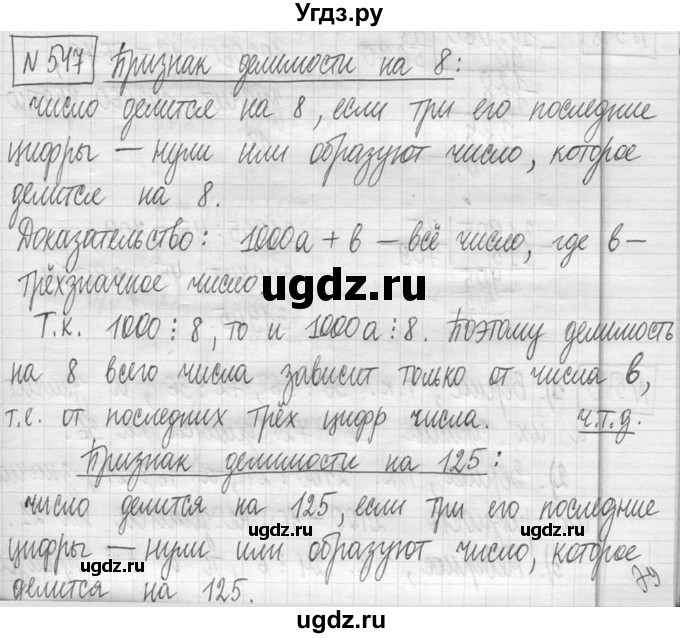 Угдз.ру
N 547 Признак делимости на 8:
число делится на 8, если три его последние
цифры — нули или образуют число, которое
делится на 8.
Доказательство: 1000a + в — всё число, где в —
трёхзначное число
ugdz.ru
Т.к. 1000 ⋮ 8, то и 1000a ⋮ 8. Поэтому делимость
на 8 всего числа зависит только от числа в,
т.е. от последних трёх цифр числа. ч.т.д.
Признак делимости на 125:
число делится на 125, если три его последние
ugdz.ru
цифры — нули или образуют число, которое
ugdz.ru
делится на 125.
ugdz.ru